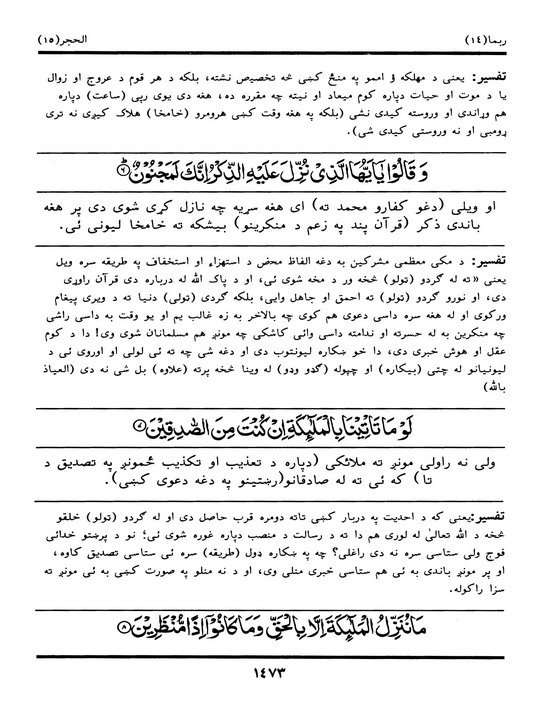 ربما(١٤) الحجر(١٥)
تفسیر: یعنی د مهلکه ؤ اممو په منځ کښی څه تخصیص نشته، بلکه د هر قوم د عروج او زوال
یا د موت او حیات دپاره کوم میعاد او نیته چه مقرره ده، هغه دی یوی رپی (ساعت) دپاره
هم وړاندی او وروسته کیدی نشی (بلکه په هغه وقت کښی هرومرو (خامخا) هلاک کیږی نه تری
ړومبی او نه وروستی کیدی شی).
وَ قَالُوْا يٰاَيُّهَا الَّذِىْ نُزِّلَ عَلَيْهِ الذِّكْرُ اِنَّكَ لَمَجْنُوْنٌ ٦
او ویلی (دغو کفارو محمد ته) ای هغه سړیه چه نازل کړی شوی دی پر هغه
باندی ذکر (قرآن پند په زعم د منکرینو) بیشکه ته خامخا لیونی ئی.
تفسیر: د مکی معظمی مشرکین به دغه الفاظ محض د استهزاء او استخفاف په طریقه سره ویل
یعنی «ته له گردو (تولو) څخه ور د مخه شوی ئی، او د پاک الله له درباره دی قرآن راوړی
دی، او نورو گردو (تولو) ته احمق او جاهل وایی، بلکه گردی (تولی) دنیا ته د ویری پیغام
ورکوی او له هغه سره داسی دعوی هم کوی چه بالاخر به زه غالب یم او یو وقت به داسی راشی
چه منکرین به له حسرته او ندامته داسی وائی کاشکی چه مونږ هم مسلمانان شوی وی! دا د کوم
عقل او هوش خبری دی، دا خو ښکاره لیونتوب دی او دغه شی چه ته ئی لولی او اوروی ئی د
لیونیانو له چتی (بیکاره) او چپوله (گدو ودو) له وینا څخه پرته (علاوه) بل شی نه دی (العیاذ
بالله)
لَوْ مَا تَاْتِيْنَا بِالْمَلٰٓئِكَةِ اِنْ كُنْتَ مِنَ الصّٰدِقِيْنَ ٧
ولی نه راولی مونږ ته ملائکی (دپاره د تعذیب او تکذیب ځمونږ په تصدیق د
تا) که ئی ته له صادقانو(رښتینو په دغه دعوی کښی).
تفسیر:یعنی که د احدیت په دربار کښی تاته دومره قرب حاصل دی او له گردو (تولو) خلقو
څخه د الله تعالیٰ له لوری هم دا ته د رسالت د منصب دپاره غوره شوی ئی؛ نو د پرښتو خدائی
فوج ولی ستاسی سره نه دی راغلی؟ چه په ښکاره ډول (طریقه) سره ئی ستاسی تصدیق کاوه،
او پر مونږ باندی به ئی هم ستاسی خبری منلی وی، او د نه منلو په صورت کښی به ئی مونږ ته
سزا راکوله.
مَا نُنَزِّلُ الْمَلٰٓئِكَةَ اِلَّا بِالْحَقِّ وَمَا كَانُوْٓا اِذًا مُّنْظَرِيْنَ ٨
١٤٧٣